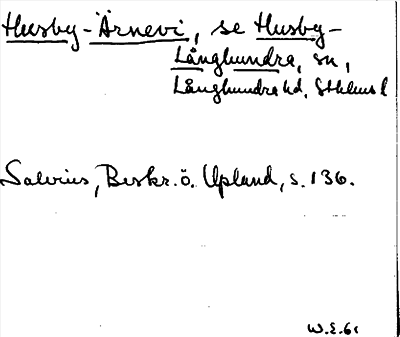 Husby-Ärnevi, se Husby-
Långhundra, sn,
Långhundra hd, Sthlms l
Salvius, Beskr. ö. Upland, s. 136.
W.E. 61